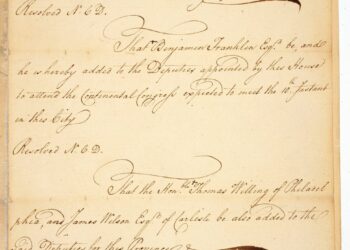 Resolved N. C D.
That Benjamin Franklin Esqr. be, and
he is hereby added to the Deputies appointed by this House
to attend the Continental Congress expected to meet the 10th. Instant
in this City
Resolved N. C D.
That the Honble. Thos. Willing of Philadel
phia, and James Wilson Esqr. of Carlisle be also added to the
Deputies for this Province &